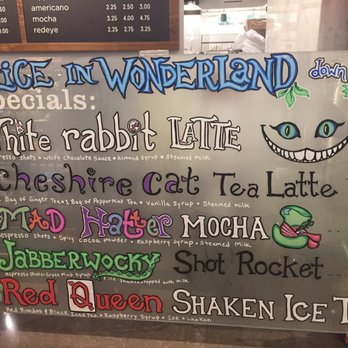 americano 2.25 2.50 2.75
mocha 3.25 4.00 4.75
redeye 2.75 3.25 3.75
LICE IN WONDERLAND
down
specials:
White rabbit LATTE
espresso shots • white chocolate Sauce • Almond syrup • Steamed milk
Cheshire Cat Tea Latte
1 Bag of Ginger Tea • 1 Bag of Peppermint Tea • Vanilla Syrup • Steamed milk
MAD Hatter MOCHA
espresso shots • Spicy cocoa powder • Raspberry Syrup • Steamed Milk
JABBERWOCKY Shot Rocket
espresso shots • Green mint syrup topped with milk
Red Queen SHAKEN ICE T
Red Rooibos & Black Iced Tea • Raspberry Syrup • Ice • Shaken